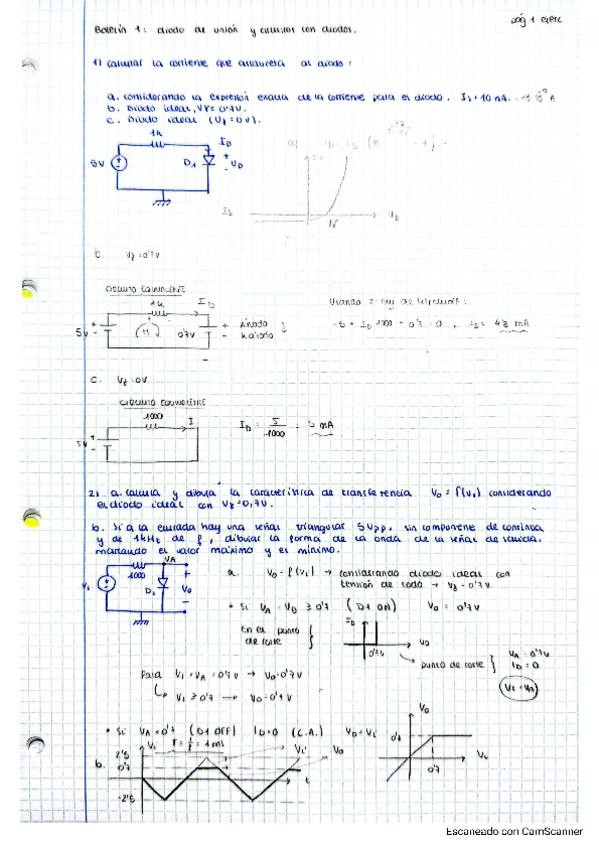 pág 1 ejerc
Boletín 1: diodo de unión y circuitos con diodos.
1) Calcular la corriente que atraviesa al diodo:
a. considerando la expresión exacta de la corriente para el diodo. Is=10 nA.
b. Diodo ideal, Vγ=0'7V.
c. Diodo ideal (Vγ=0V).
1k
ID
5V
D1
+
VD
-
a)
Is
VD
b. Vγ=0'7V
CIRCUITO EQUIVALENTE
1k
ID
5V
0'7V
+ Ánodo
- Kátodo
c. Vγ=0V
CIRCUITO EQUIVALENTE
1000
I
5V
ID = 5/1000 = 5 mA
2) a. Calcula y dibuja la característica de transferencia Vo = f(Vi) considerando
el diodo ideal con Vγ=0,7V.
b. Si a la entrada hay una señal triangular 5Vpp, sin componente de continua
y de 1kHz de f, dibujar la forma de la onda de la señal de salida,
marcando el valor máximo y el mínimo.
VA
1000
Vi
D1
+
Vo
-
a. Vo = f(Vi) → considerando diodo ideal con
tensión de codo → Vγ=0'7V
• Si VA = VD ≥ 0'7 (D1 ON) Vo = 0'7V
En el punto
de corte
ID
0'7V
VD
→ punto de corte
VA=0'7V
ID=0
Vi=VA
Para Vi=VA=0'7V → Vo=0'7V
Vi ≥ 0'7 → Vo=0'7V
• Si VA<0'7 (D1 OFF) ID=0 (C.A.) Vo=Vi
b.
Vi
T=1/f=1ms
Vi
Vo
2'5
0'7
-2'5
t
Vo
0'7
0'7
Vi
Escaneado con CamScanner